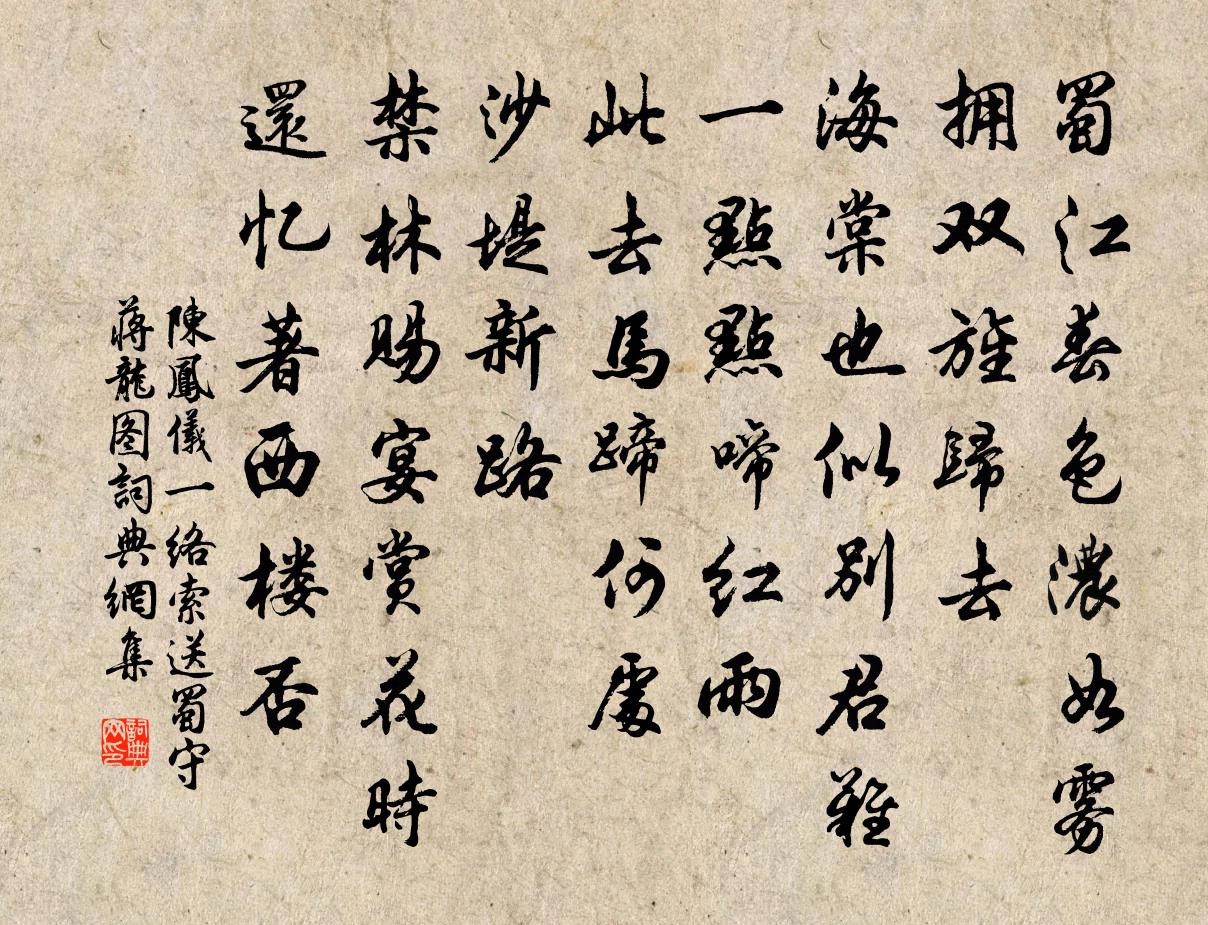 蜀江春色濃如雾
拥双旌歸去
海棠也似别君難
一點點啼红雨
此去馬蹄何處
沙堤新路
禁林賜宴賞花時
還忆著西楼否
陳鳳儀一络索送蜀守
蔣龍图詞典網集
詞典网印